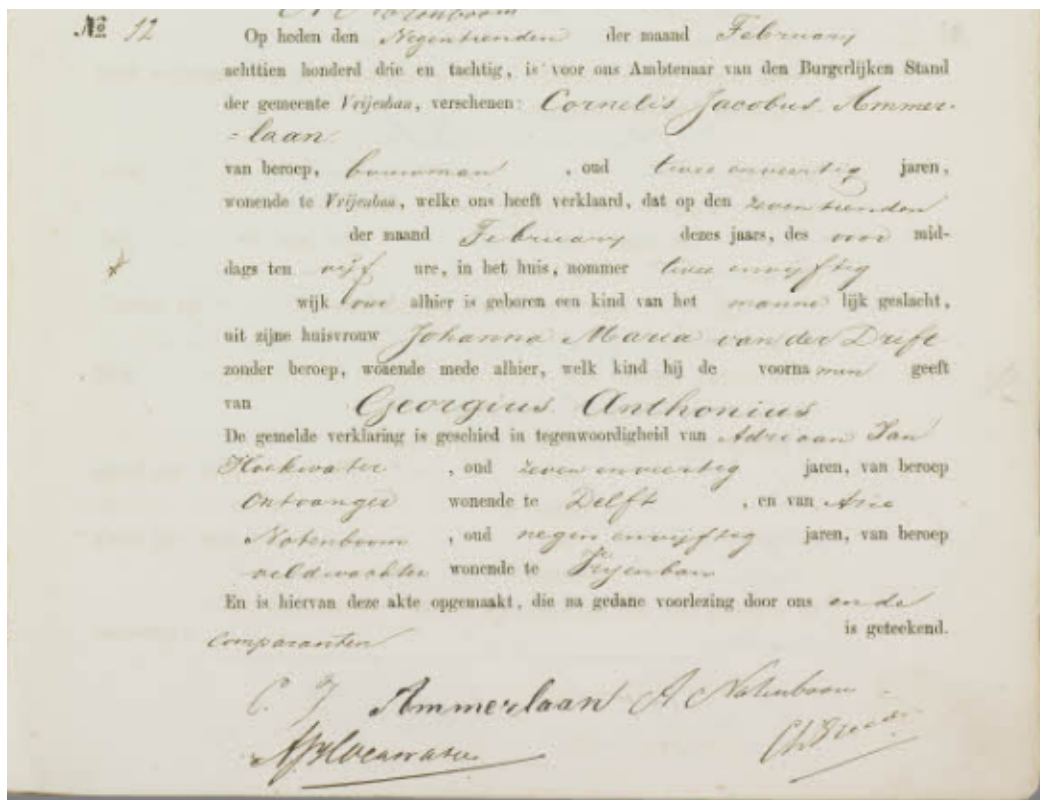 Notenboom
№ 12
Op heden den Negentienden der maand February
achttien honderd drie en tachtig, is voor ons Ambtenaar van den Burgerlijken Stand
der gemeente Vrijenban, verschenen: Cornelis Jacobus Ammer-
=laan
van beroep, bouwman , oud twee enveertig jaren,
wonende te Vrijenban, welke ons heeft verklaard, dat op den zeventienden
der maand February dezes jaars, des voor mid-
dags ten vijf ure, in het huis, nommer twee envijftig
wijk alhier is geboren een kind van het manne lijk geslacht,
uit zijne huisvrouw Johanna Maria van der Drift
zonder beroep, wonende mede alhier, welk kind hij de voornamen geeft
van Georgius Anthonius
De gemelde verklaring is geschied in tegenwoordigheid van Adriaan Jan
Hoekwater , oud zeven enveertig jaren, van beroep
Ontvanger wonende te Delft , en van Arie
Notenboom , oud negen envijftig jaren, van beroep
veldwachter wonende te Vrijenban
En is hiervan deze akte opgemaakt, die na gedane voorlezing door ons en de
comparanten is geteekend.
C. J. Ammerlaan A Notenboom
AJHoekwater